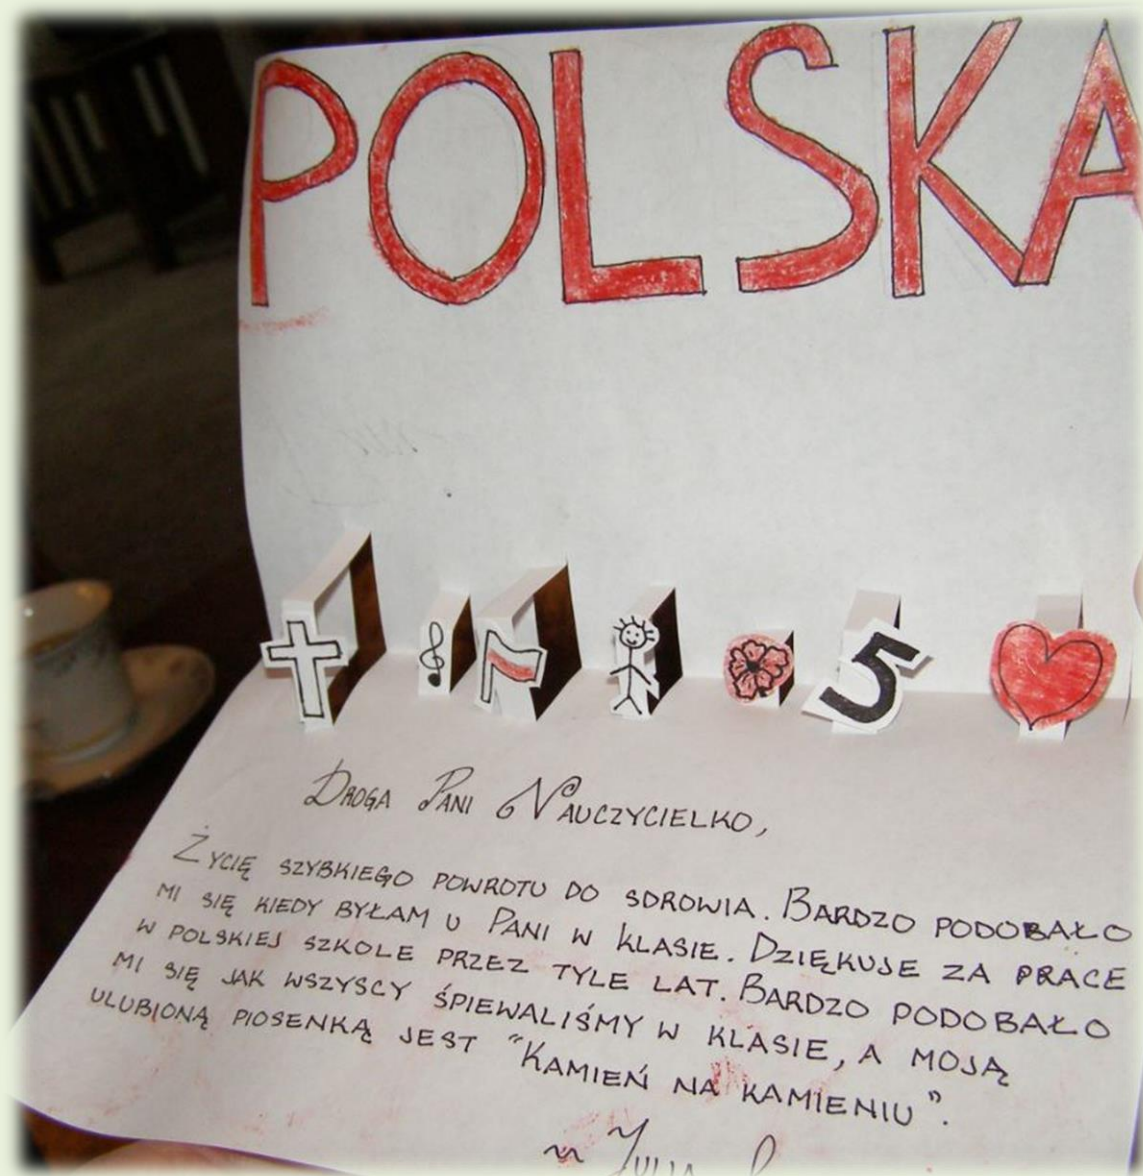 POLSKA
5
DROGA PANI NAUCZYCIELKO,
ŻYCIĘ SZYBKIEGO POWROTU DO SDROWIA. BARDZO PODOBAŁO
MI SIĘ KIEDY BYŁAM U PANI W KLASIE. DZIĘKUJE ZA PRACE
W POLSKIEJ SZKOLE PRZEZ TYLE LAT. BARDZO PODOBAŁO
MI SIĘ JAK WSZYSCY ŚPIEWALIŚMY W KLASIE, A MOJĄ
ULUBIONĄ PIOSENKĄ JEST "KAMIEŃ NA KAMIENIU".
~ JULIA